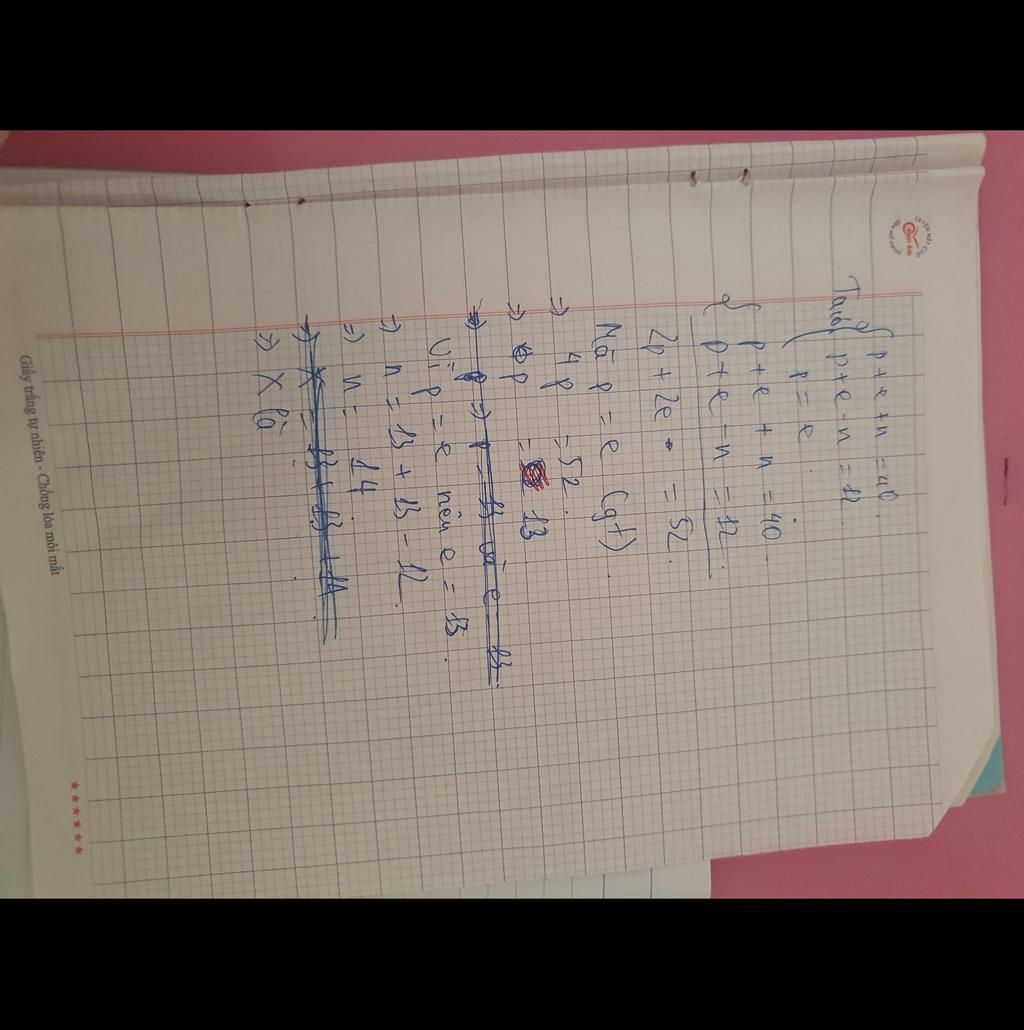 p + e + n = 40
Ta có p + e - n = 12
p = e
p + e + n = 40
p + e - n = 12
2p + 2e = 52
Mà p = e (gt)
=> 4p = 52
=> p = 13
=> p = 13 và e = 13
Vì p = e nên e = 13
=> n = 13 + 13 - 12
=> n = 14
=> X = 13 + 13 + 14
=> X là
Giấy trắng tự nhiên - Chống lóa mỏi mắt